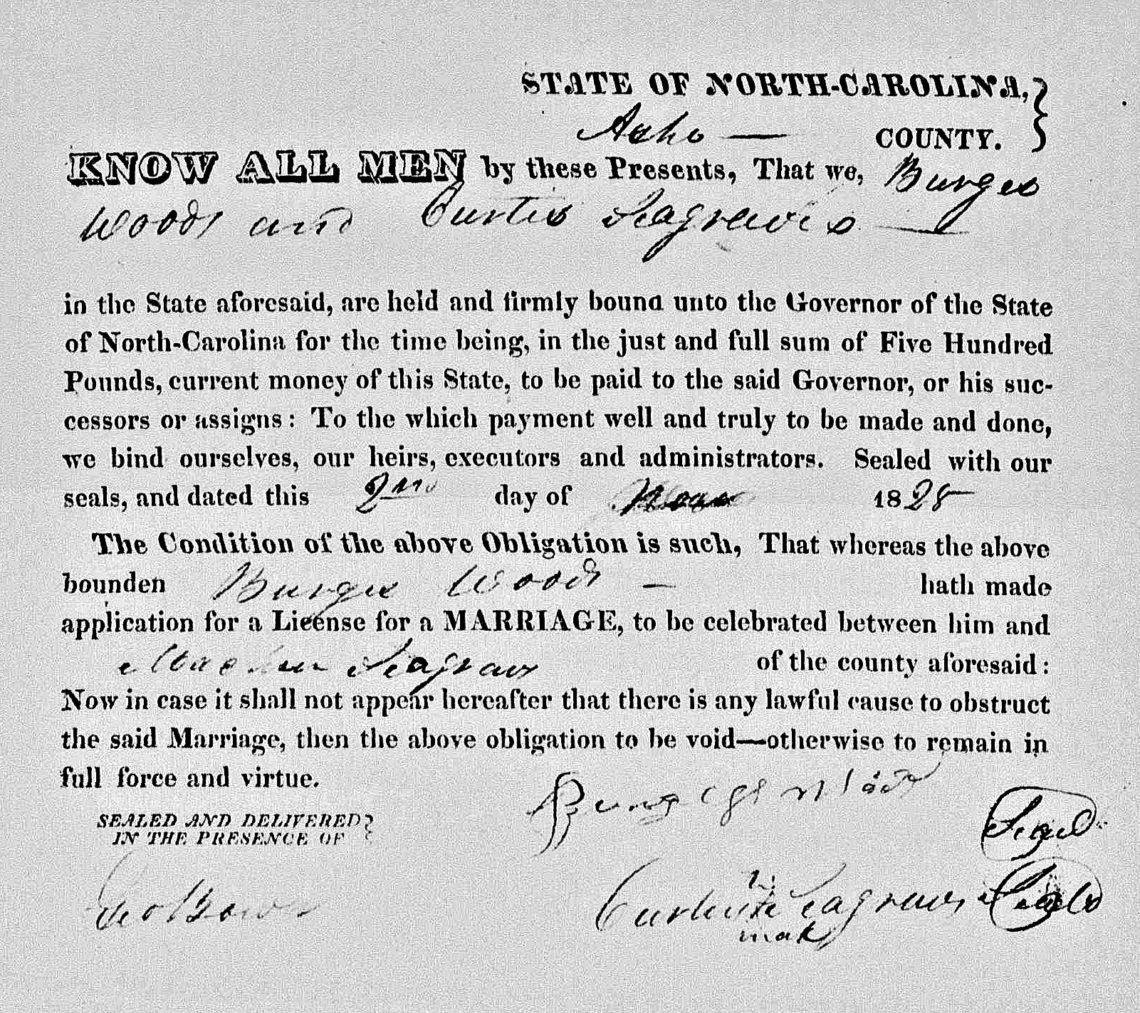 STATE OF NORTH-CAROLINA,
Ashe — COUNTY.
KNOW ALL MEN by these Presents, That we, Burges
Woods and Curtis Seagraves —
in the State aforesaid, are held and firmly bound unto the Governor of the State
of North-Carolina for the time being, in the just and full sum of Five Hundred
Pounds, current money of this State, to be paid to the said Governor, or his suc-
cessors or assigns: To the which payment well and truly to be made and done,
we bind ourselves, our heirs, executors and administrators. Sealed with our
seals, and dated this 2nd day of 1828
The Condition of the above Obligation is such, That whereas the above
bounden Burges Woods — hath made
application for a License for a MARRIAGE, to be celebrated between him and
Seagraves of the county aforesaid:
Now in case it shall not appear hereafter that there is any lawful cause to obstruct
the said Marriage, then the above obligation to be void—otherwise to remain in
full force and virtue.
SEALED AND DELIVERED
IN THE PRESENCE OF
Seal
Geo Bower
Curtis Seagraves Seal
mark